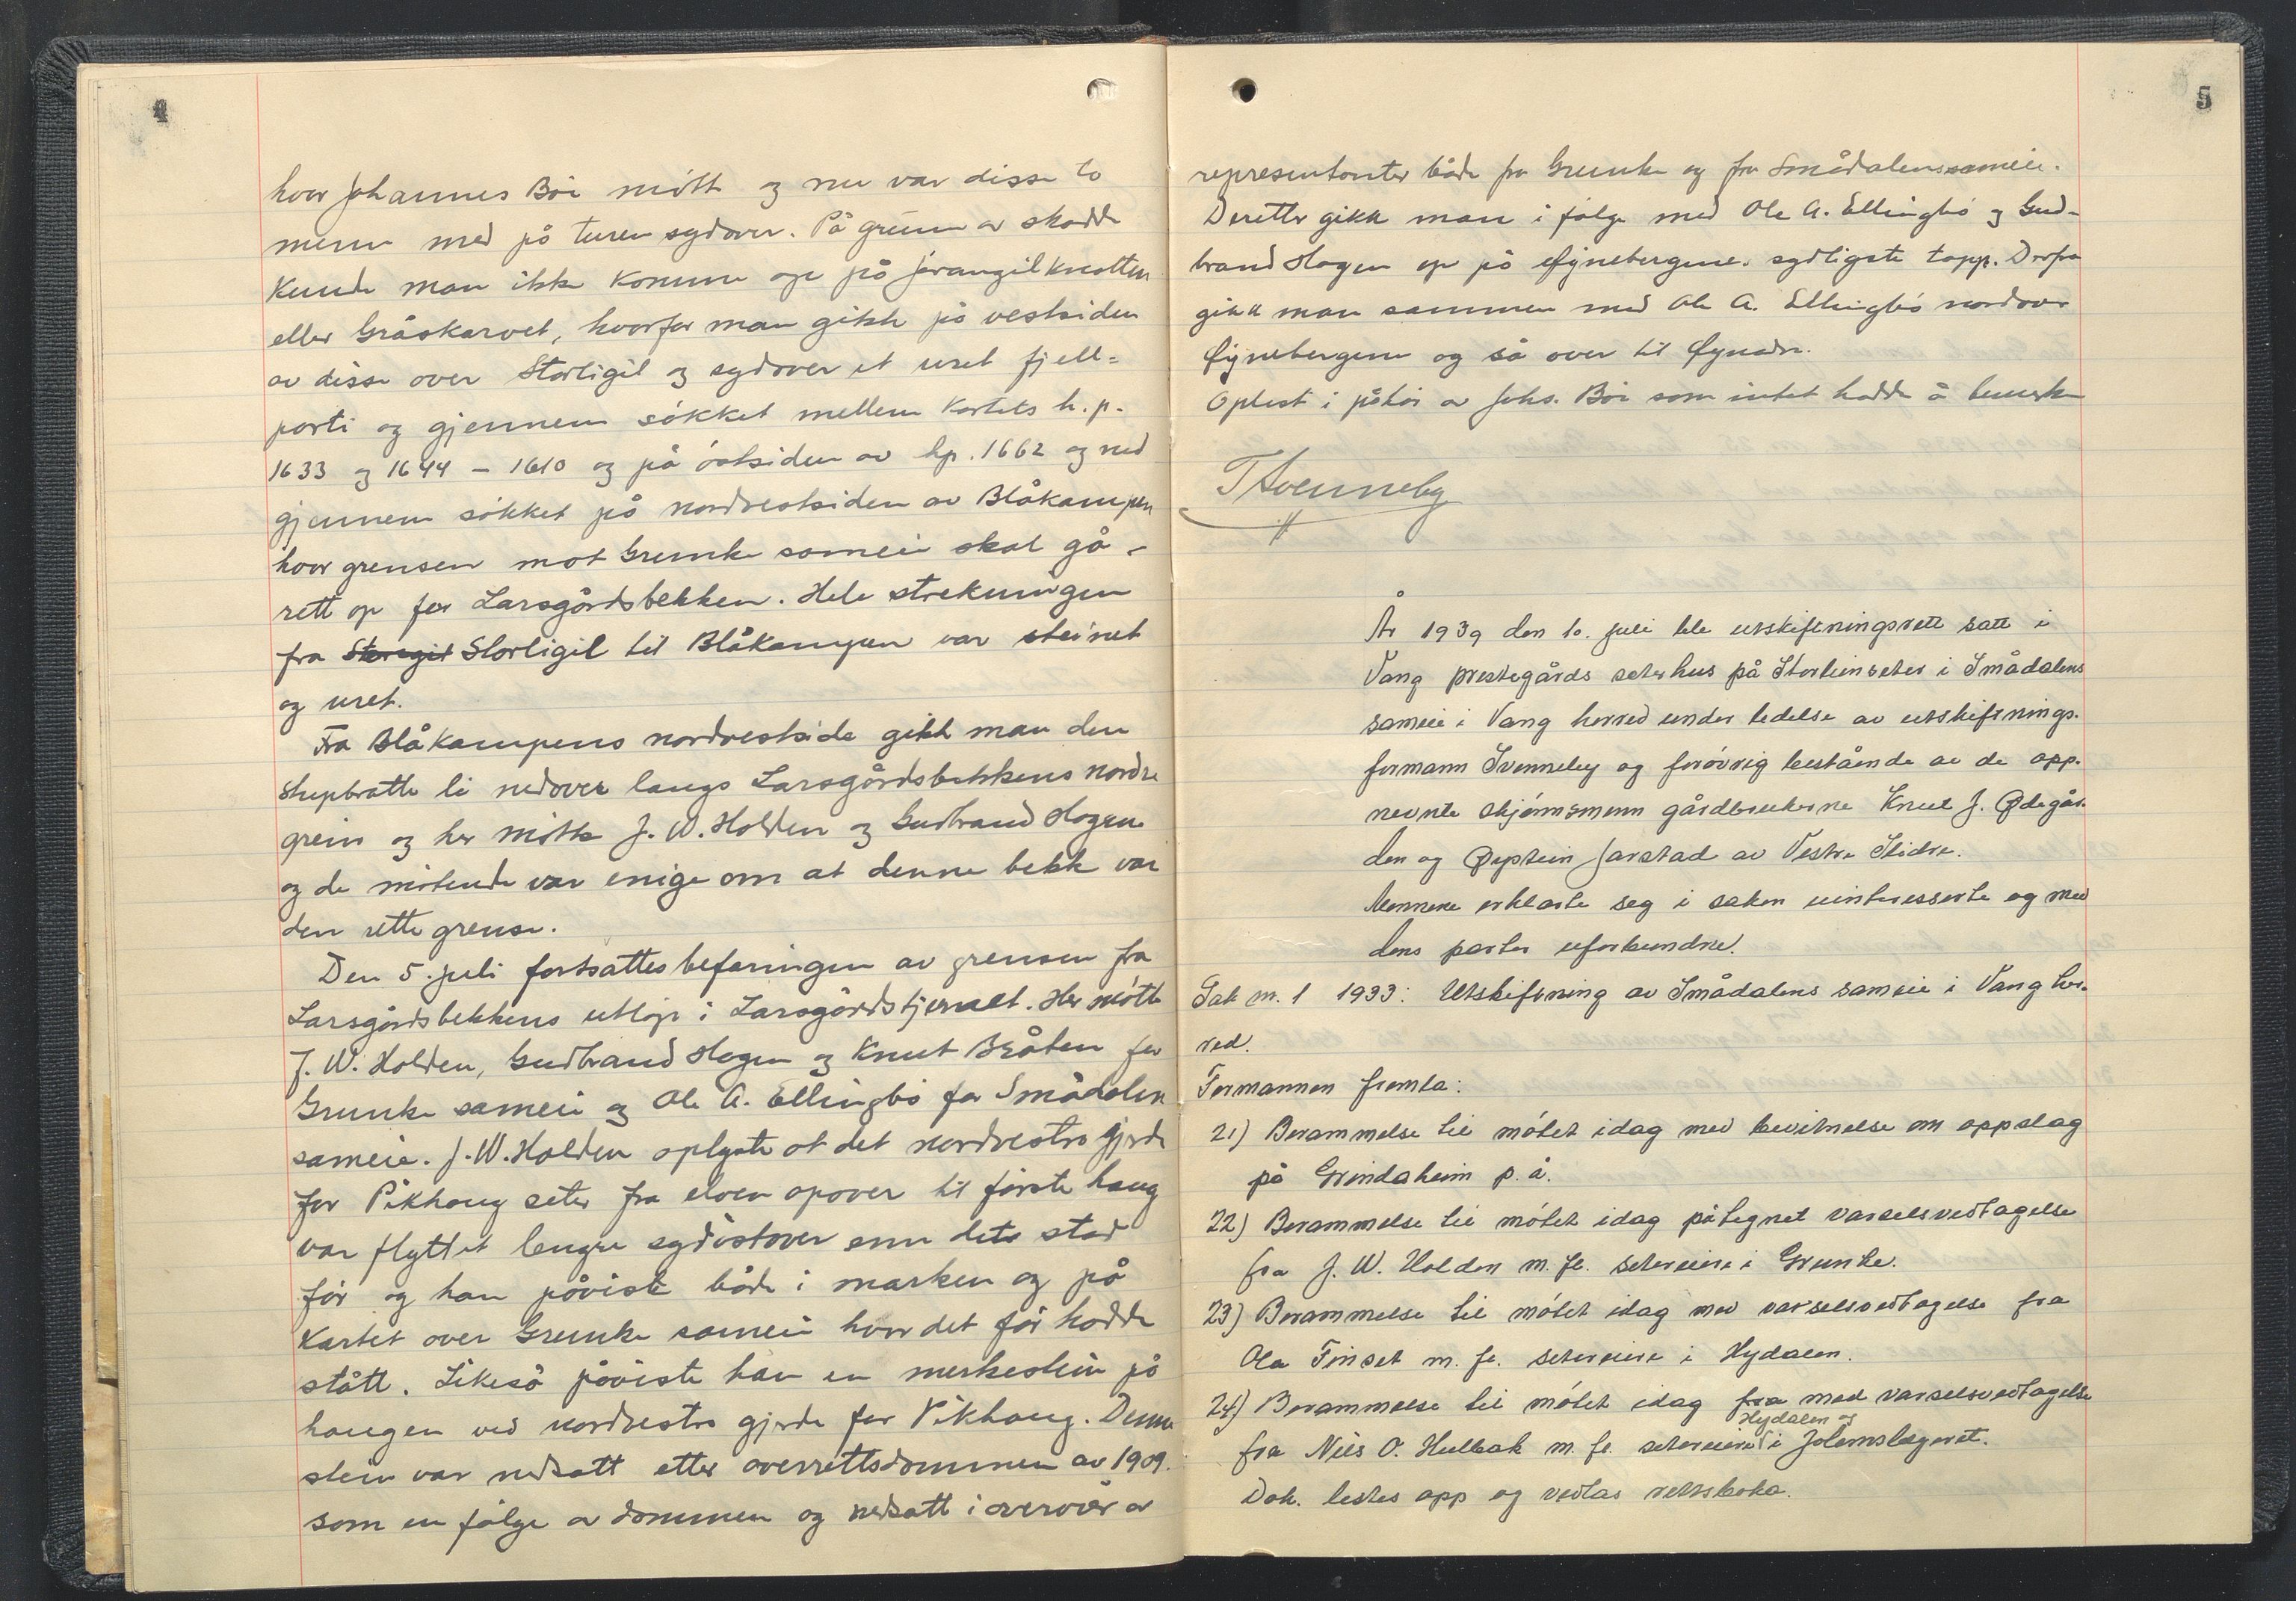 4
hvor Johannes Böe mötte og nu var disse to
menn med på turen sydover. På grunn av skodde
kunde man ikke komme op på Jörangilknatten
eller Gråskarvet, hvorfor man gikk på vestsiden
av disse over Storligil og sydover et uret fjell-
parti og gjennem sökket mellem kartets h.p.
1633 og 1644 - 1610 og på östsiden av hp. 1662 og ned
gjennem sökket på nordvestsiden av Blåkampen
hvor grensen mot Grunke sameie skal gå -
rett op for Larsgårdsbekken. Hele strekningen
fra Storegil Storligil til Blåkampen var steinet
og uret.
Fra Blåkampens nordvestside gikk man den
stupbratte li nedover langs Larsgårdsbekkens nordre
grein og her mötte J. W. Holden og Gudbrand Hagen
og de mötende var enige om at denne bekk var
den rette grense.
Den 5. juli fortsattes befaringen av grensen fra
Larsgårdsbekkens utlöp i Larsgårdstjernet. Her mötte
J. W. Holden, Gudbrand Hagen og Knut Bråten for
Grunke sameie og Ole A. Ellingbö for Smådalen
sameie. J. W. Holden oplyste at det nordvestre gjerde
for Pikhaug seter fra elven opover til förste haug
var flyttet lengre sydöstover enn dets sted
för og han påviste både i marken og på
kartet over Grunke sameie hvor det för hadde
stått. Likeså påviste han en merkestein på
haugen ved nordvestre gjerde for Pikhaug. Denne
stein var nedsatt etter overrettsdommen av 1909.
som en fölge av dommen og nedsatt i overvær av
5
representanter både fra Grunke og fra Smådalens sameie.
Deretter gikk man i fölge med Ole A. Ellingbö og Gud-
brand Hagen op på Øynebergene. sydligste topp. Derfra
gikk man sammen med Ole A. Ellingbö nordover
Øynebergene og så over til Øynadn.
Oplest i påhör av Johs. Böe som intet hadde å bemerke
T Svenneby
År 1939 den 10. juli ble utskiftningsrett satt i
Vang prestegårds seterhus på Storlienseter i Smådalens
sameie i Vang herred under ledelse av utskiftnings-
formann Svenneby og forövrig bestående av de opp-
nevnte skjönnsmenn gårdbrukerne Knut J. Ødegår-
den og Øystein Jarstad av Vestre Slidre.
Mennene erklærte seg i saken uinteresserte og med
dens parter uforbundne.
Sak nr. 1 1933: Utskiftning av Smådalens sameie i Vang her-
red.
Formannen fremla:
21) Berammelse til mötet idag med bevitnelse om oppslag
på Grindaheim p. å.
22) Berammelse til mötet idag påtegnet varselsvedtagelse
fra J. W. Holden m. fl. setereiere i Grunke.
23) Berammelse til mötet idag med varselsvedtagelse fra
Ola Finset m. fl. setereiere i Hydalen.
24) Berammelse til mötet idag fra med varselsvedtagelse
Hydalen og
fra Nils O. Hulbak m. fl. setereiere i Jolernslægeret.
Dok. lestes opp og vedlas rettsboka.